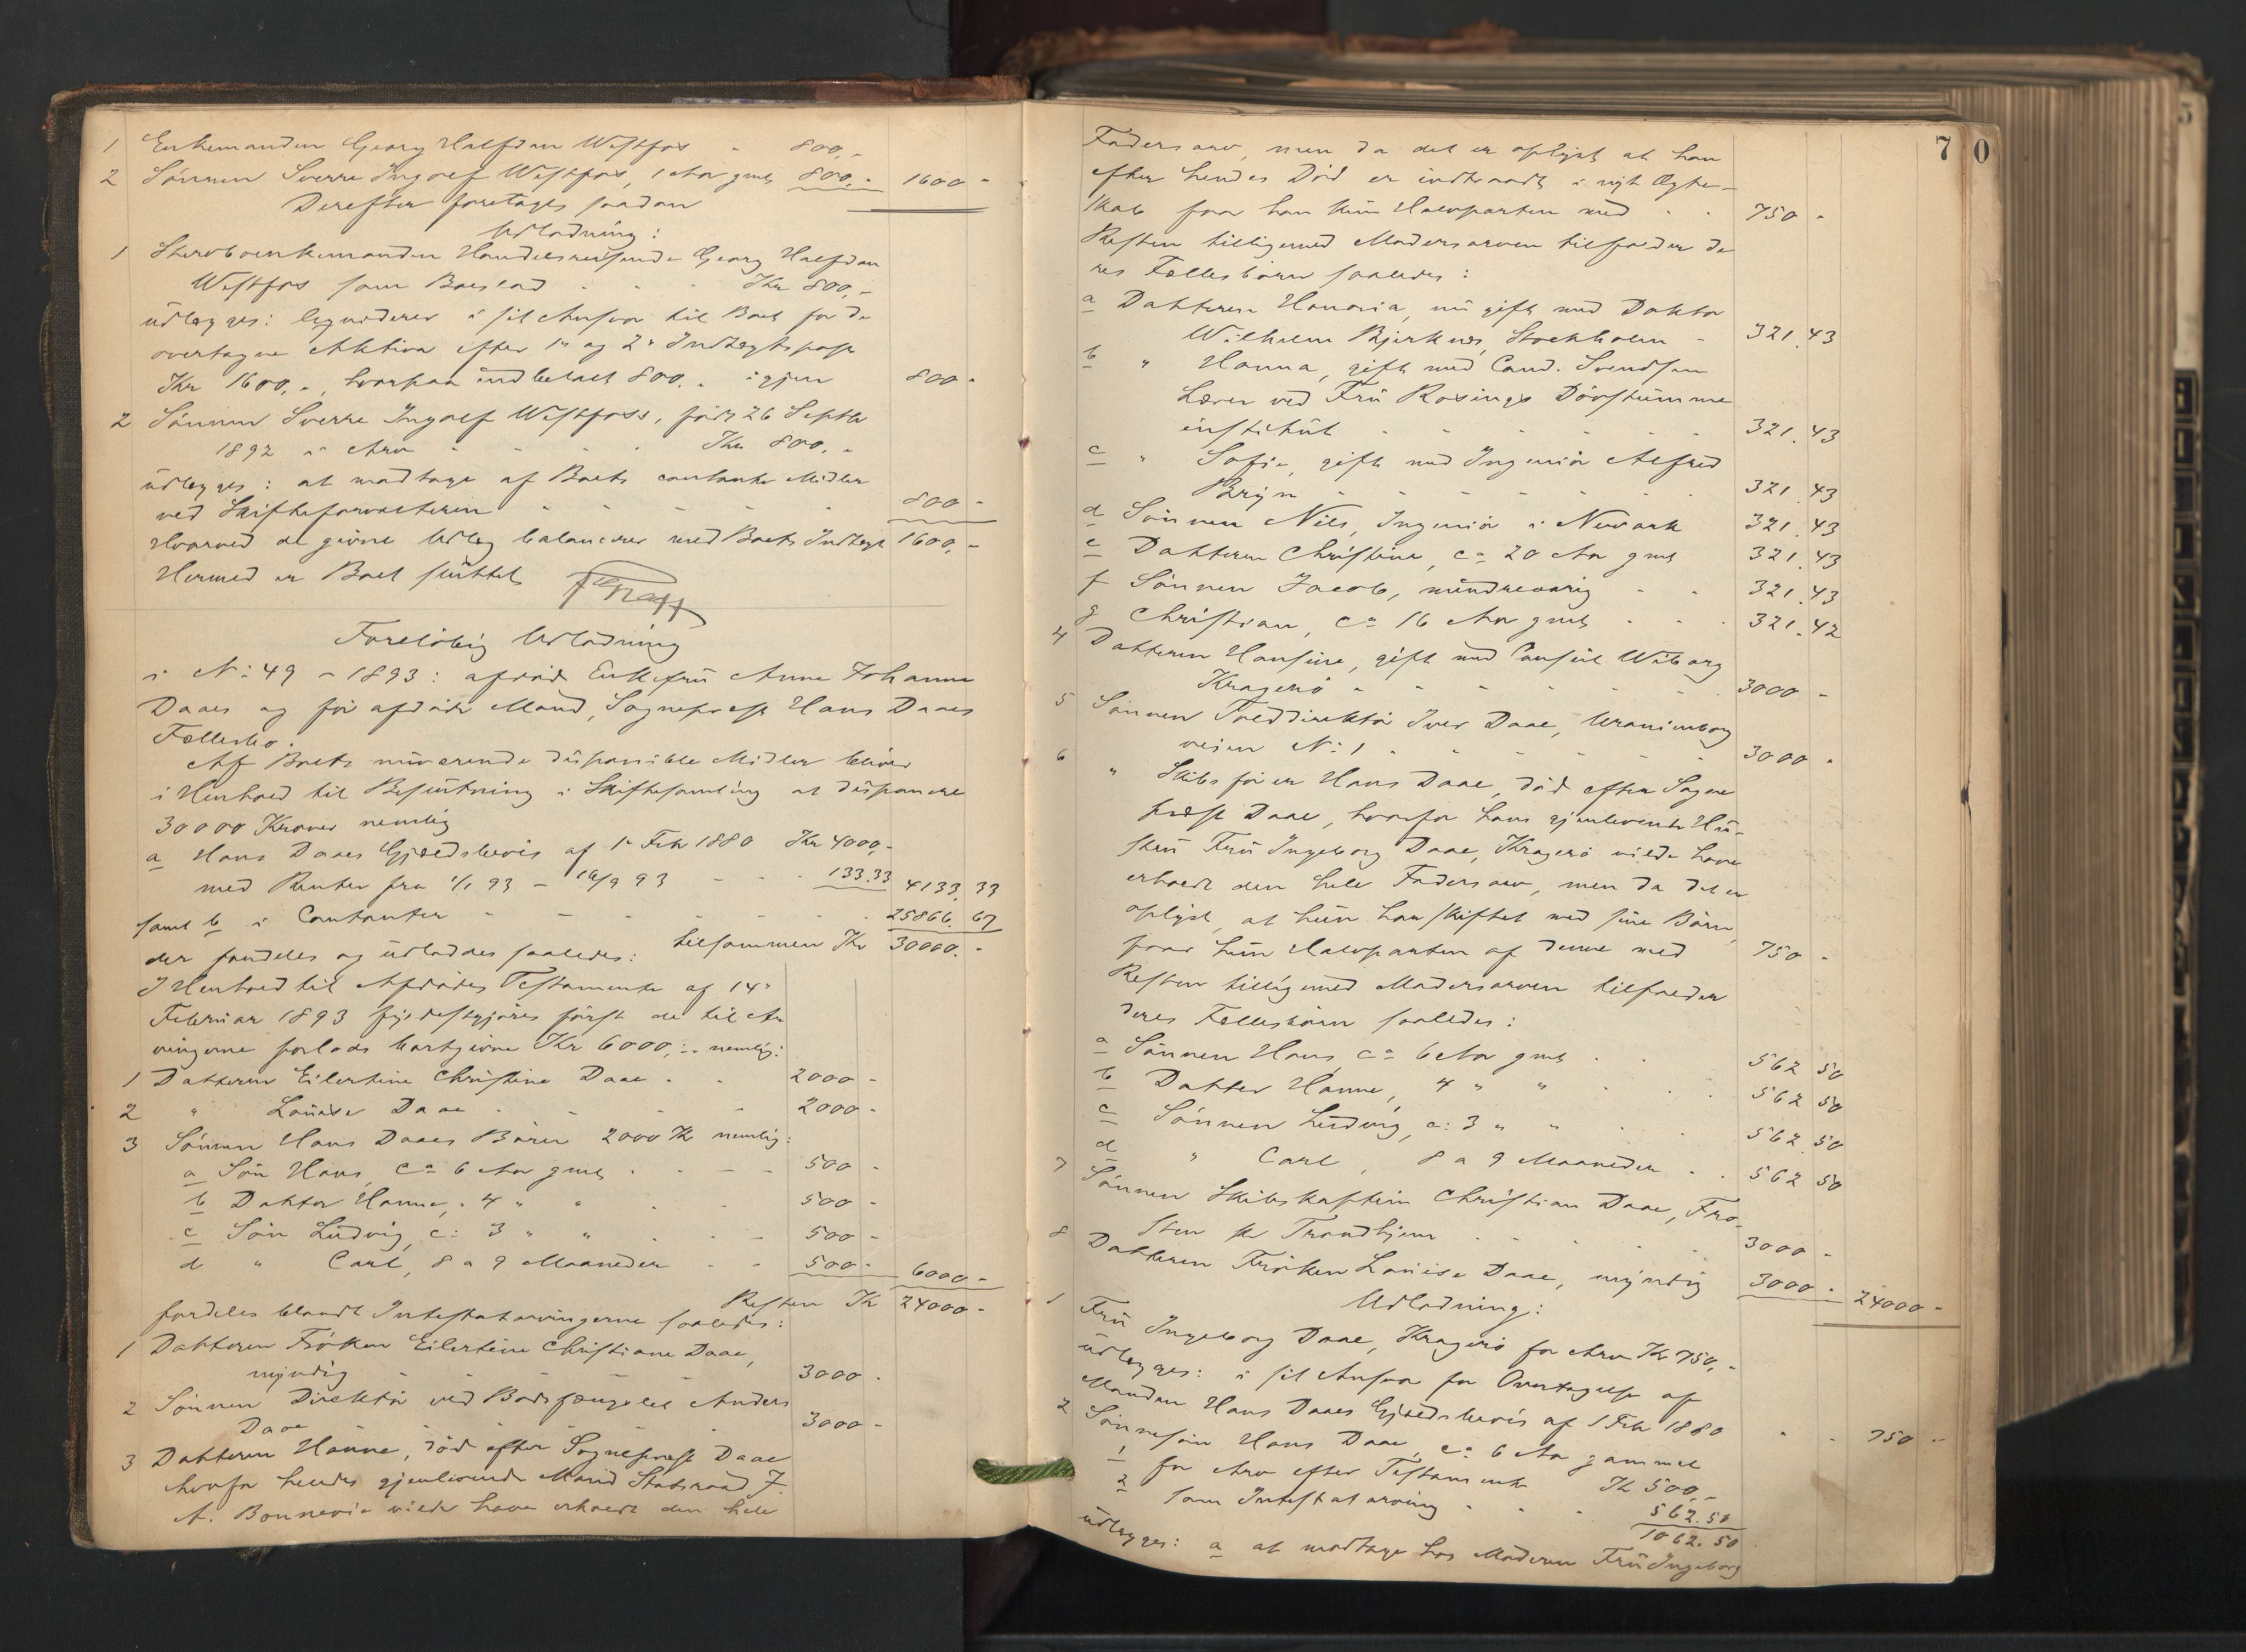 1 Enkemanden Georg Halfdan Westfos - 800,-
2 Sönnen Sverre Ingolf Westfos, 1 Aar gml 800,- 1600 -
Derefter foretages saadan
Udlodning:
1 Sterboenkemanden Handelsreisende Georg Halfdan
Westfos som Boeslod - - - Kr 800,-
udlægges: liqviderer i sit Ansvar til Boet for de
overtagne Aktiva efter 1ste og 2den Indtægtspost
Kr 1600,-, hvorpaa indbetalt 800.- igjen 800 -
2 Sönnen Sverre Ingolf Westfoss, född 26 Septbr
1892 i Arv - - - - Kr 800,-
udlægges: at modtage af Boets contante Midler
ved Skifteforvalteren - - - - - 800 -
Hvorved de givne Udlæg balancerer med Boets Indtægt 1600,-
Hermed er Boet sluttet
Foreløbig Udlodning
i No 49 - 1893: afdöde Enkefru Anne Johanne
Daaes og før afdöde Mand, Sogneprest Hans Daaes
Fællesbo.
Af Boets nuværende disponible Midler bliver
i Henhold til Beslutning i Skiftesamling at disponere
30000 Kroner nemlig
a Hans Daaes Gjældsbevis af 1 Febr 1880 Kr 4000,-
med Renter fra 1/1 93 - 16/9 93 - - - 133.33 4133.33
samt b i Contanter - - - - - - 25866.67
tilsammen Kr 30000.-
der fordeles og udloddes saaledes:
I Henhold til Afdödes Testamente af 14de
Februar 1893 fyldestgjøres først de til Ar
vingerne forlods bortgivne Kr 6000,- nemlig:
1 Datteren Eilertine Christine Daae - - 2000 -
2 " Louise Daae - - - - 2000 -
3 Sönnen Hans Daaes Börn 2000 Kr nemlig:
a Sön Hans, ca 6 Aar gml - - - - 500 -
b Datter Hanne, " 4 " " - - 500 -
c Sön Ludvig, c: 3 " " - - - 500 -
d " Carl, 8 a 9 Maaneder - - 500 - 6000 -
Resten Kr 24000 -
fordeles blandt Intestatarvingerne saaledes:
1 Datteren Fröken Eilertine Christiane Daae,
myndig - - - - - 3000 -
2 Sönnen Direktör ved Bodsfængslet Anders
Daae - - - - - 3000 -
3 Datteren Hanne, död efter Sogneprest Daae
hvorfor hendes gjenlevende Mand Statsraad J.
A. Bonnevie vilde have erholdt den hele
7 0
Fadersarv, men da det er oplyst at han
efter hendes Död er indtraadt i nyt Ægte-
skab faar han kun Halvparten med - - 750 -
Resten tilligemed Modersarven tilfalder de
res Fællesbörn saaledes:
a Datteren Honoria, nu gift med Doktor
Wilhelm Bjerknes, Stockholm - 321.43
b " Hanna, gift med Cand. Svendsen
Lærer ved Fru Rosings Dövstumme
institut - - - - - - 321.43
c " Sofie, gift med Ingeniör Alfred
Bryn - - - - - - 321.43
d Sönnen Nils, Ingeniör i Newark 321.43
e Datteren Christine, ca 20 Aar gml 321.43
f Sönnen Jacob, mindreaarig - - 321.43
g Christian, ca 16 Aar gml - - - 321.42
4 Datteren Hansine, gift med Consul Wiborg
Kragerö - - - - - - 3000 -
5 Sönnen Tolddirektör Iver Daae, Uranienborg
veien No 1 - - - - - 3000 -
6 " Skibsförer Hans Daae, död efter Sogne
prest Daae, hvorfor hans gjenlevende Hu-
stru Fru Ingeborg Daae, Kragerö vilde have
erholdt den hele Fadersarv, men da det er
oplyst, at hun har skiftet med sine Börn,
faar hun Halvparten af denne med 750 -
Resten tilligemed Modersarven tilfalder
deres Fællesbörn saaledes:
a Sönnen Hans, ca 6 Aar gml - - 562 50
b Datter Hanne, 4 " " - - - 562 50
c Sönnen Ludvig, c: 3 " " - - 562.50
d " Carl, 8 a 9 Maaneder - - 562 50
7 Sönnen Skibskaptein Christian Daae, Fro-
sten pr Trondhjem - - - - - 3000 -
8 Datteren Fröken Louise Daae, myndig 3000 - 24000 -
Udlodning:
1 Fru Ingeborg Daae, Kragerö for Arv Kr 750,-
udlægges: i sit Ansvar for Overtagelse af
Manden Hans Daaes Gjældsbevis af 1 Febr 1880 - - 750 -
2 Sönnesön Hans Daae, ca 6 Aar gammel
1 for Arv efter Testamente Kr 500,-
2 som Intestatarving - - - 562.50
1062.50
udlægges: a at modtage hos Moderen Fru Ingeborg